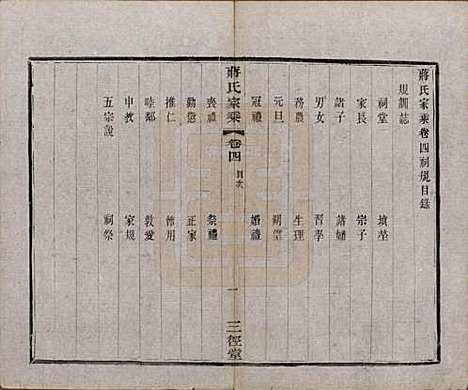 蔣氏家乘卷四祠規目錄
規訓誌
祠堂 墳塋
家長 宗子
諸子 諸婦
男女 習孝
務農 生理
元旦 朔望
冠禮 婚禮
蔣氏家乘 卷四 目次 一 三徑堂
喪禮 祭禮
勸懲 正家
推仁 節用
睦鄰 敦愛
申教 家規
五宗說 祠祭